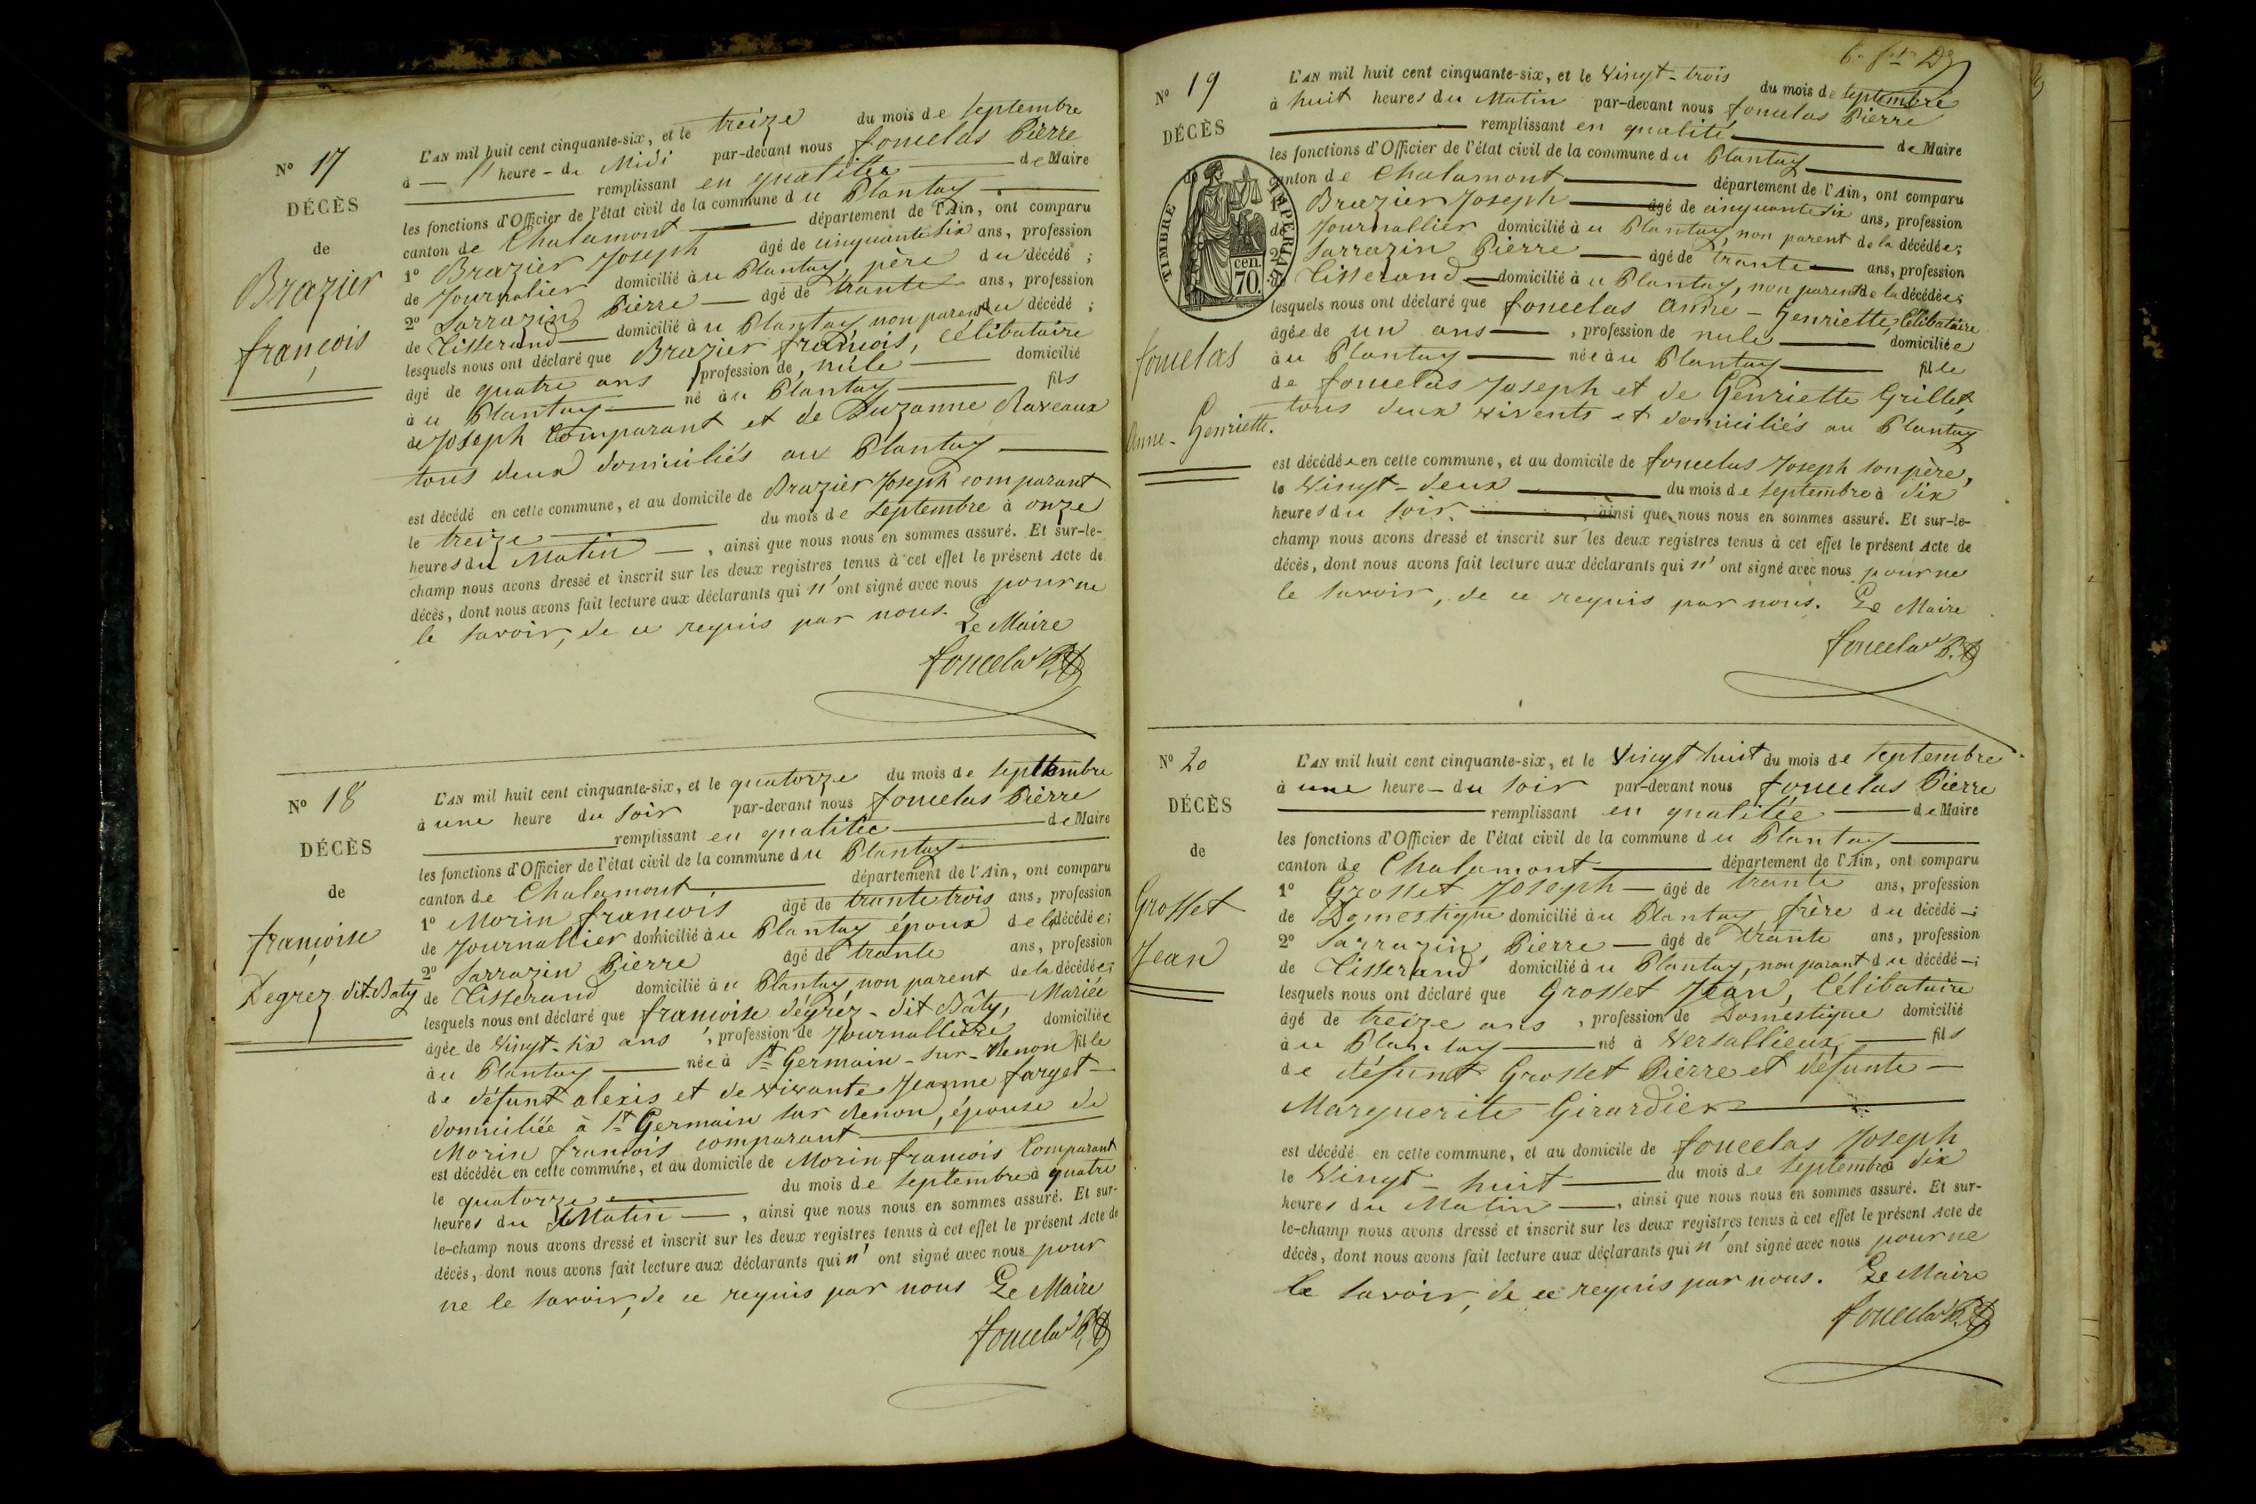 N° 17
DÉCÈS
de
Brazier
françois
L'AN mil huit cent cinquante-six, et le treize du mois de septembre
à — heure - de Midi par-devant nous fouclas Pierre
remplissant en qualitée de Maire
les fonctions d'Officier de l'état civil de la commune du Plantay
canton de Chalamont département de l'Ain, ont comparu
1° Brazier Joseph âgé de cinquante six ans, profession
de Journalier domicilié àu Plantay, père du décédé ;
2° Sarrazin Pierre — âgé de trante ans, profession
de Tisserand — domicilié àu Plantay non parent du décédé ;
lesquels nous ont déclaré que Brazier françois, Célibataire
âgé de quatre ans profession de, nule — domicilié
àu Plantay — né àu Plantay — fils
de Joseph Comparant et de Suzanne Raveaux
tous deux domiciliés au Plantay
est décédé en cette commune, et au domicile de Brazier Joseph comparant
le treize du mois de septembre à onze
heures du Matin —, ainsi que nous nous en sommes assuré. Et sur-le-
champ nous avons dressé et inscrit sur les deux registres tenus à cet effet le présent Acte de
décès, dont nous avons fait lecture aux déclarants qui n'ont signé avec nous pour ne
le savoir, de ce requis par nous. Le Maire
fouclas P.
N° 18
DÉCÈS
de
françoise
Degrez dit Baty
L'AN mil huit cent cinquante-six, et le quatorze du mois de septtembre
à une heure du soir par-devant nous fouclas Pierre
remplissant en qualitée de Maire
les fonctions d'Officier de l'état civil de la commune du Plantay
canton de Chalamont, département de l'Ain, ont comparu
1° Morin francois âgé de trante trois ans, profession
de Journallier domicilié àu Plantay époux de la décédée ;
2° Sarrazin Pierre âgé de trante ans, profession
de Tisserand domicilié àu Plantay, non parent de la décédée ;
lesquels nous ont déclaré que françoise dégréz - dit Bâty, Mariée
âgée de Vingt-six ans, profession de Journallière domiciliée
àu Plantay — née à St Germain-sur-Renon fille
de défunt alexis et de vivante Jeanne farget —
domiciliée à St Germain sur Renon, épouse de
Morin francois comparant
est décédée en cette commune, et au domicile de Morin francois Comparant
le quatorze du mois de septembre à quatre
heures du Matin —, ainsi que nous nous en sommes assuré. Et sur-
le-champ nous avons dressé et inscrit sur les deux registres tenus à cet effet le présent Acte de
décès, dont nous avons fait lecture aux déclarants qui n' ont signé avec nous pour
ne le savoir, de ce requis par nous Le Maire
fouclas P.
N° 19
DÉCÈS
TIMBRE IMPERIAL
cen.
70.
fouclas
Anne - Genriette.
L'AN mil huit cent cinquante-six, et le Vingt-trois du mois de septembre
à huit heures du Matin par-devant nous fouclas Pierre
remplissant en qualité de Maire
les fonctions d'Officier de l'état civil de la commune du Plantay
canton de Chalamont département de l'Ain, ont comparu
Brazier Joseph âgé de cinquante six ans, profession
de Journallier domicilié àu Plantay, non parent de la décédée ;
2° Sarrazin Pierre — âgé de trante — ans, profession
Tisserand — domicilié àu Plantay, non parent de la décédée ;
lesquels nous ont déclaré que fouclas anne - Genriette, Célibataire
âgée de un ans —, profession de nule — domiciliée
àu Plantay — née àu Plantay — fille
de fouclas Joseph et de Genriette Grillet,
tous deux vivents et domiciliés au Plantay
est décédée en cette commune, et au domicile de fouclas Joseph son père,
le Vingt-deux du mois de septembre à dix
heures du soir, ainsi que nous nous en sommes assuré. Et sur-le-
champ nous avons dressé et inscrit sur les deux registres tenus à cet effet le présent Acte de
décès, dont nous avons fait lecture aux déclarants qui n' ont signé avec nous pour ne
le savoir, de ce requis par nous. Le Maire
fouclas P.
N° 20
DÉCÈS
de
Grosset
Jean
L'AN mil huit cent cinquante-six, et le Vingt huit du mois de septembre
à une heure - du soir par-devant nous fouclas Pierre
remplissant en qualitée — de Maire
les fonctions d'Officier de l'état civil de la commune du Plantay
canton de Chalamont département de l'Ain, ont comparu
1° Grosset Joseph — âgé de trante ans, profession
de Domestique domicilié àu Plantay, frère du décédé - ;
2° Sarrazin Pierre — âgé de trante ans, profession
de Tisserand domicilié àu Plantay, non parant du décédé - ;
lesquels nous ont déclaré que Grosset Jean, Célibataire
âgé de treize ans, profession de Domestique domicilié
àu Plantay — né à Versallieux — fils
de défunt Grosset Pierre et défunte —
Marguerite Girardier
est décédé en cette commune, et au domicile de fouclas Joseph
le Vingt-huit — du mois de septembre à dix
heures du Matin —, ainsi que nous nous en sommes assuré. Et sur-
le-champ nous avons dressé et inscrit sur les deux registres tenus à cet effet le présent Acte de
décès, dont nous avons fait lecture aux déclarants qui n' ont signé avec nous pour ne
le savoir, de ce requis par nous. Le Maire
fouclas P.